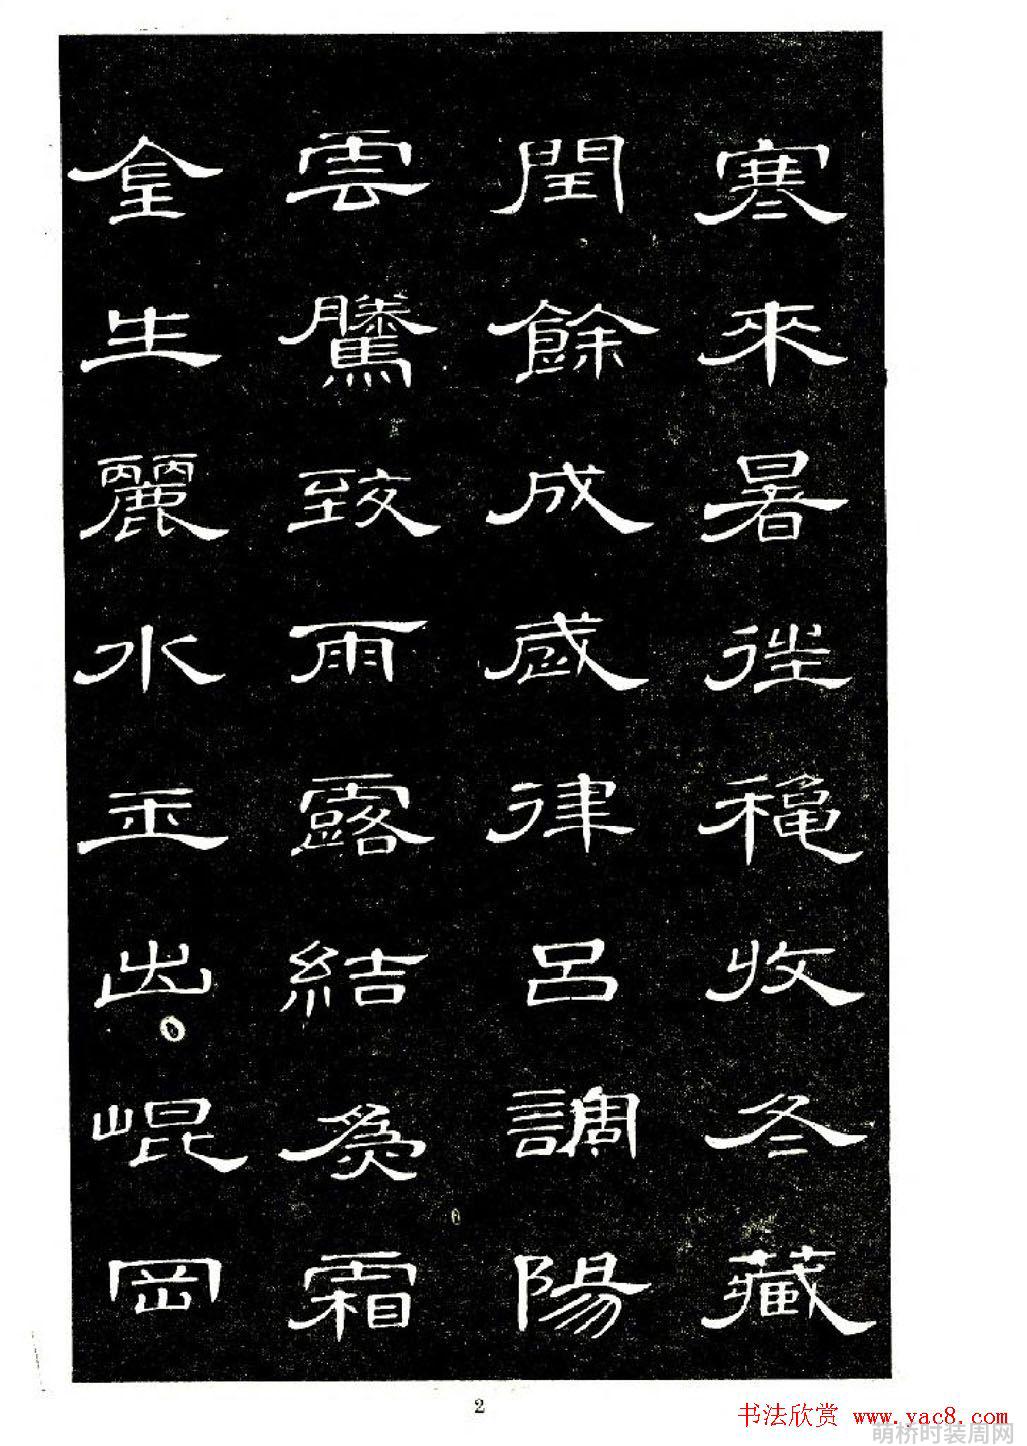 寒來暑往穐收冬藏
閏餘成歲律呂調陽
雲騰致雨露結爲霜
金生麗水玉出崐岡
2
书法欣赏 www.yac8.com
萌桥时装周网